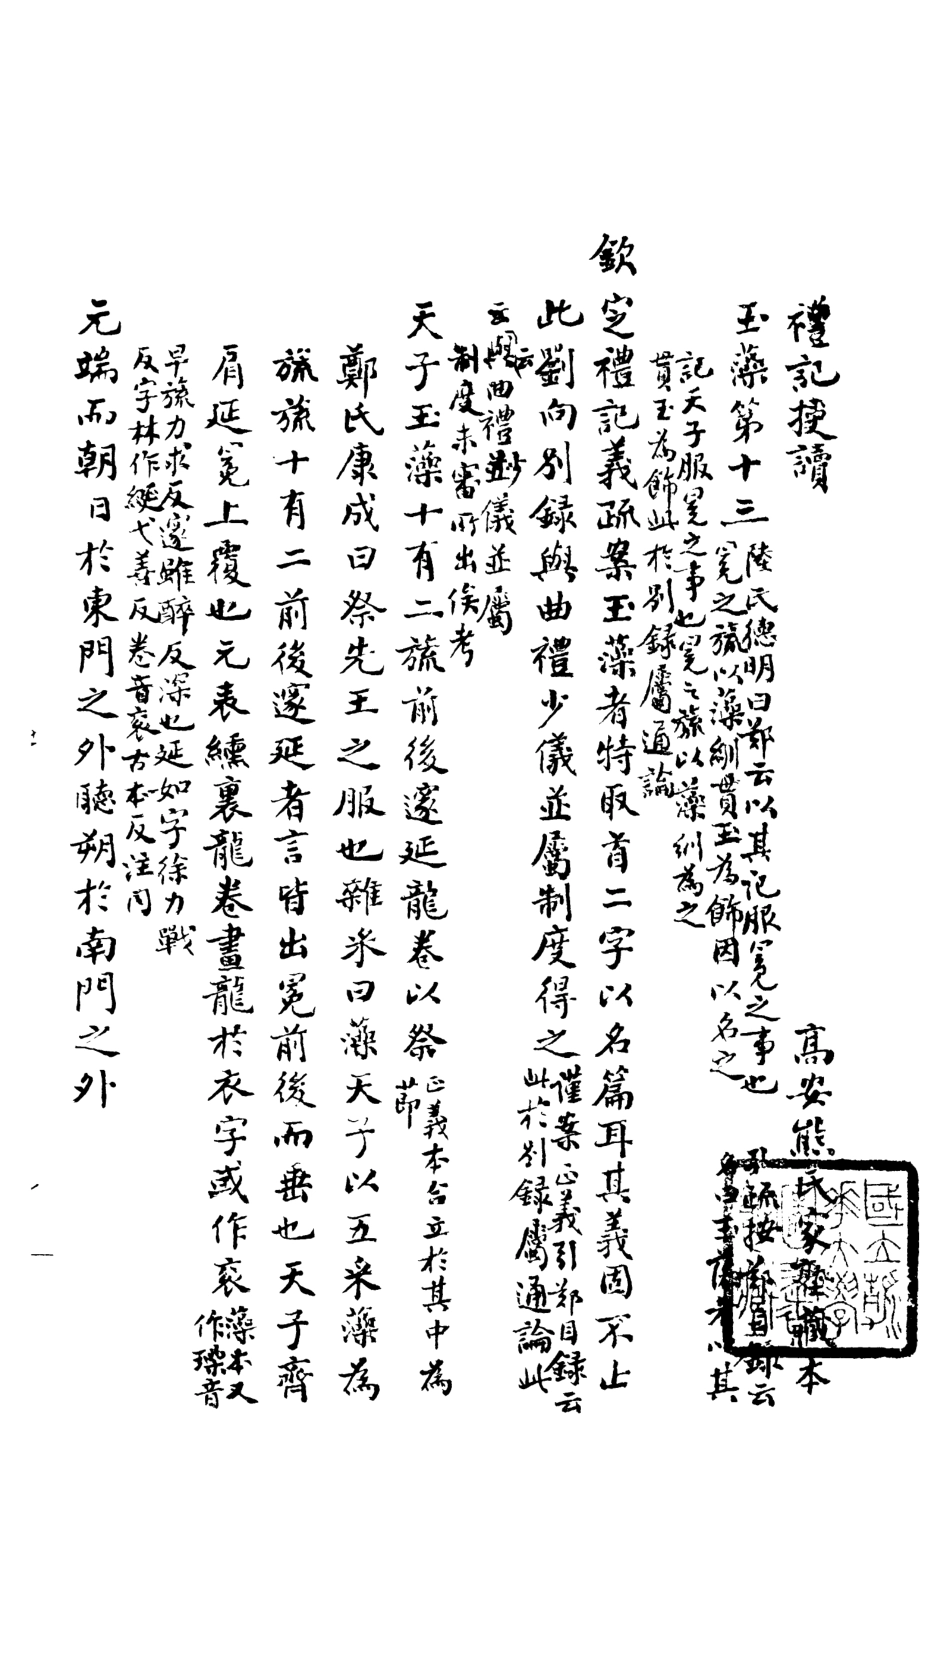 禮記捷讀
高安熊氏家塾藏本
玉藻第十三
陸氏德明曰鄭云以其記服冕之事也
冕之旒以藻紃貫玉為飾因以名之
孔疏按鄭目錄云
名曰玉藻者以其
記天子服冕之事也冕之旒以藻紃為之
貫玉為飾此於別錄屬通論
欽定禮記義疏案玉藻者特取首二字以名篇耳其義固不止
此劉向別錄與曲禮少儀並屬制度得之
謹案正義引鄭目錄云
此於別錄屬通論此
云與曲禮少儀並屬
制度未審所出俟考
天子玉藻十有二旒前後邃延龍卷以祭
正義本合立於其中為
節
鄭氏康成曰祭先王之服也雜采曰藻天子以五采藻為
旒旒十有二前後邃延者言皆出冕前後而垂也天子齊
肩延冕上覆也元表纁裏龍卷畫龍於衣字或作衮
藻本又
作璪音
早旒力求反邃雖醉反深也延如字徐力戰
反字林作綖弋善反卷音衮古本反注同
元端而朝日於東門之外聽朔於南門之外